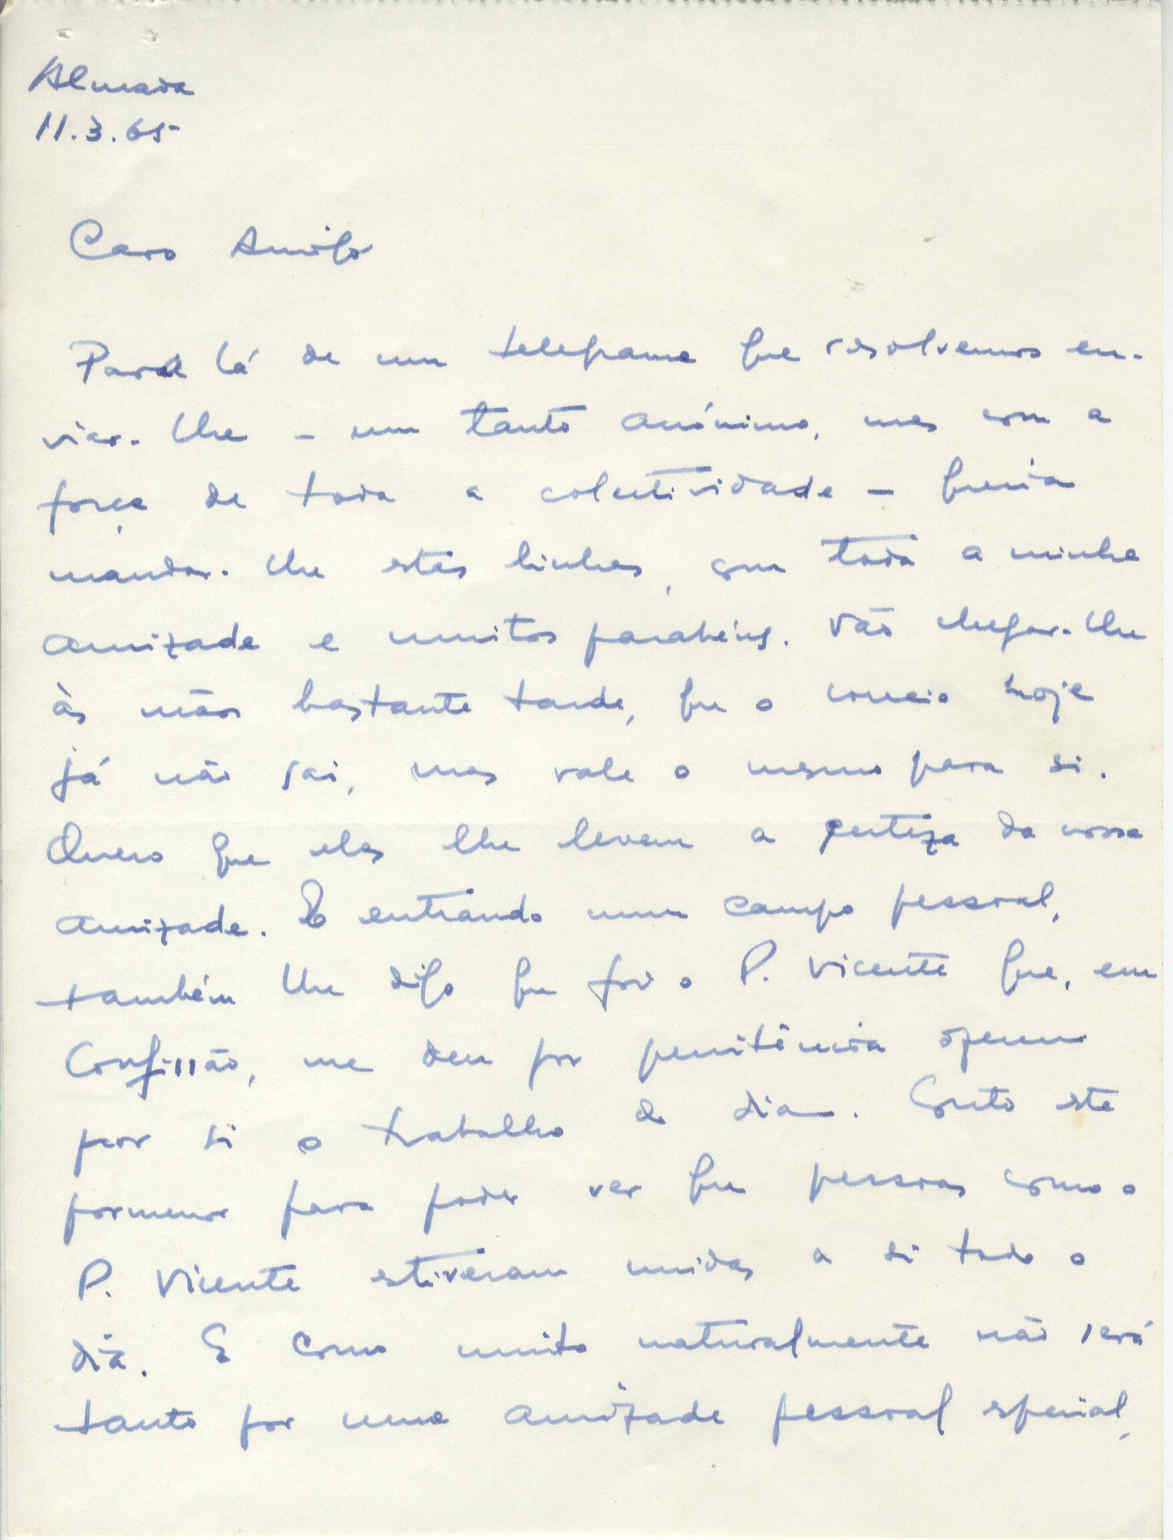 Almada
11.3.65
Caro Amigo
Para lá de um telegrama que resolvemos en-
viar-lhe – um tanto anónimo, mas com a
força de toda a colectividade – queria
mandar-lhe estas linhas, com toda a minha
amizade e muitos parabéns. Vão chegar-lhe
às mãos bastante tarde, que o correio hoje
já não sai, mas vale o mesmo para si.
Quero que elas lhe levem a certeza da nossa
amizade. E entrando num campo pessoal,
também lhe digo que foi o P. Vicente que, em
Confissão, me deu por penitência oferecer
por si o trabalho do dia. Conto este
pormenor para poder ver que pessoas como o
P. Vicente estiveram unidas a si todo o
dia. E como muito naturalmente não será
tanto por uma amizade pessoal especial,